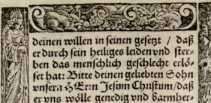 deinen willen in seinen gesetz / daß
er durch sein heiliges leiden vnd ster-
ben das menschlich geschlecht erlö-
set hat: Bitte deinen geliebten Sohn
vnsern HErrn Jesum Christum / daß
er vns wölle genedig vnd barmher-